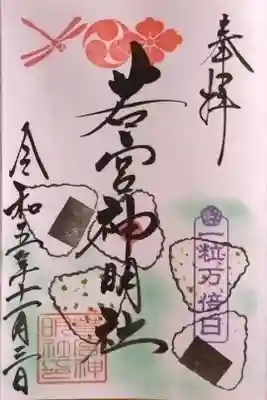 奉拝
若宮神明社
一粒万倍日
令和五年十一月三日